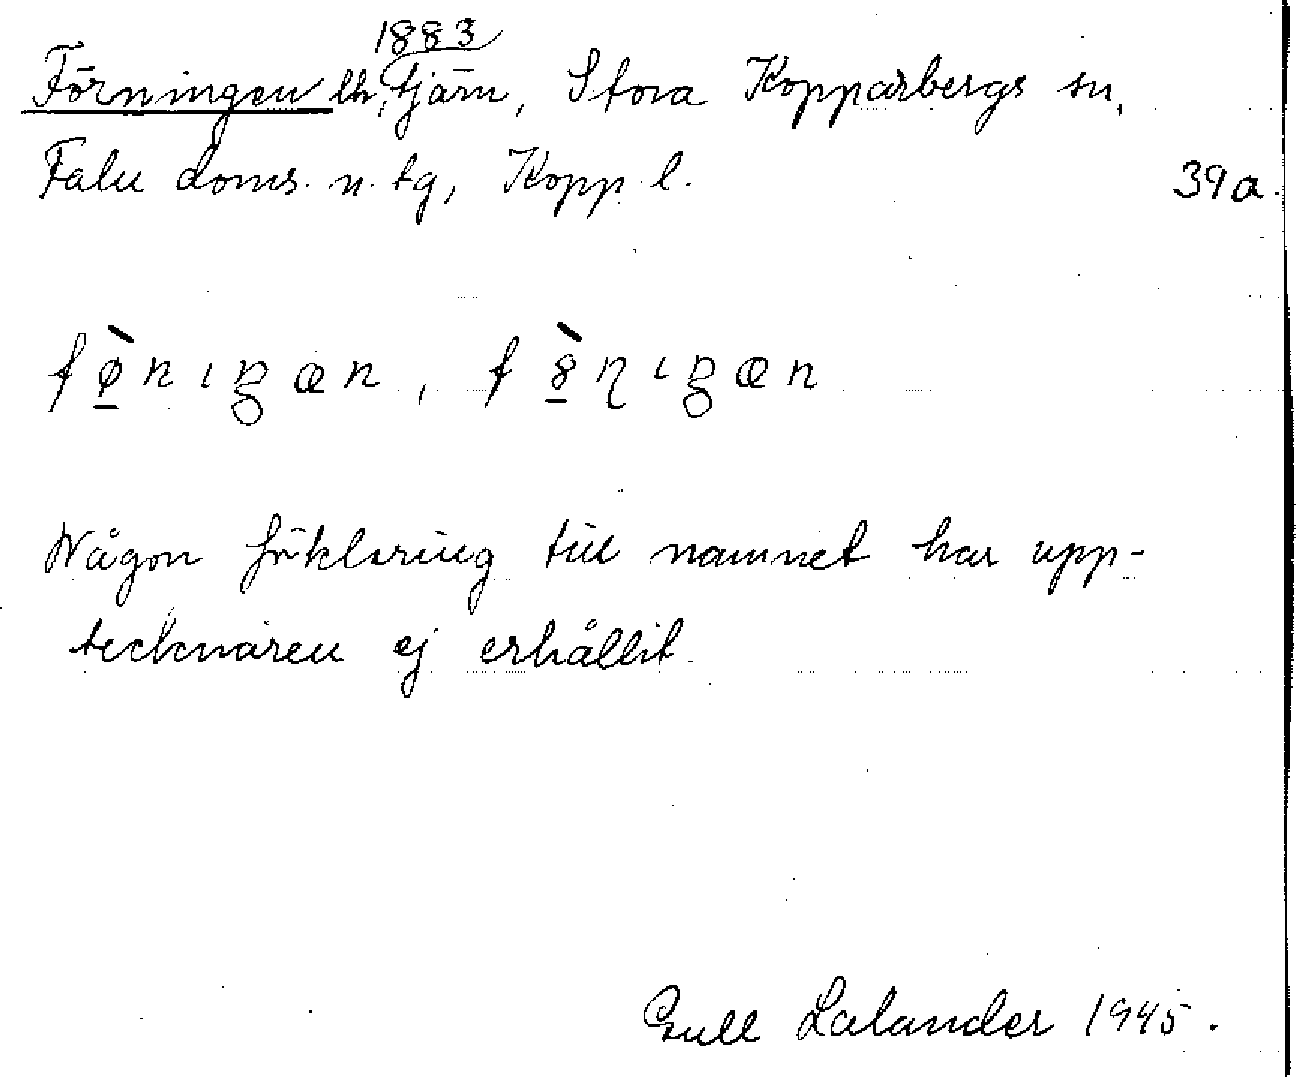 1883
Förningen lh, tjärn, Stora Kopparbergs sn,
Falu doms. n. tg, Kopp. l.
39a.
Någon förklaring till namnet har upp-
tecknaren ej erhållit.
Gull Lalander 1945.